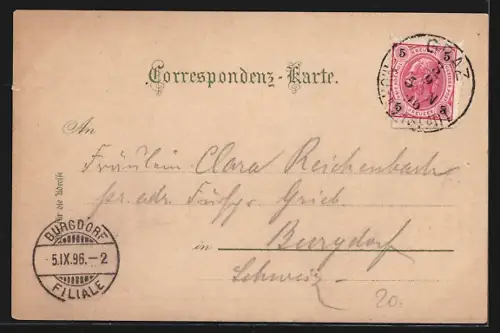 5 5
GRAZ
5 5
Correspondenz-Karte.
An
Fräulein Clara Reichenbach
pr. adr. Grieb
Nur für die Adresse
in Burgdorf
Schweiz
BURGDORF
5.IX.96.-2
FILIALE
20.